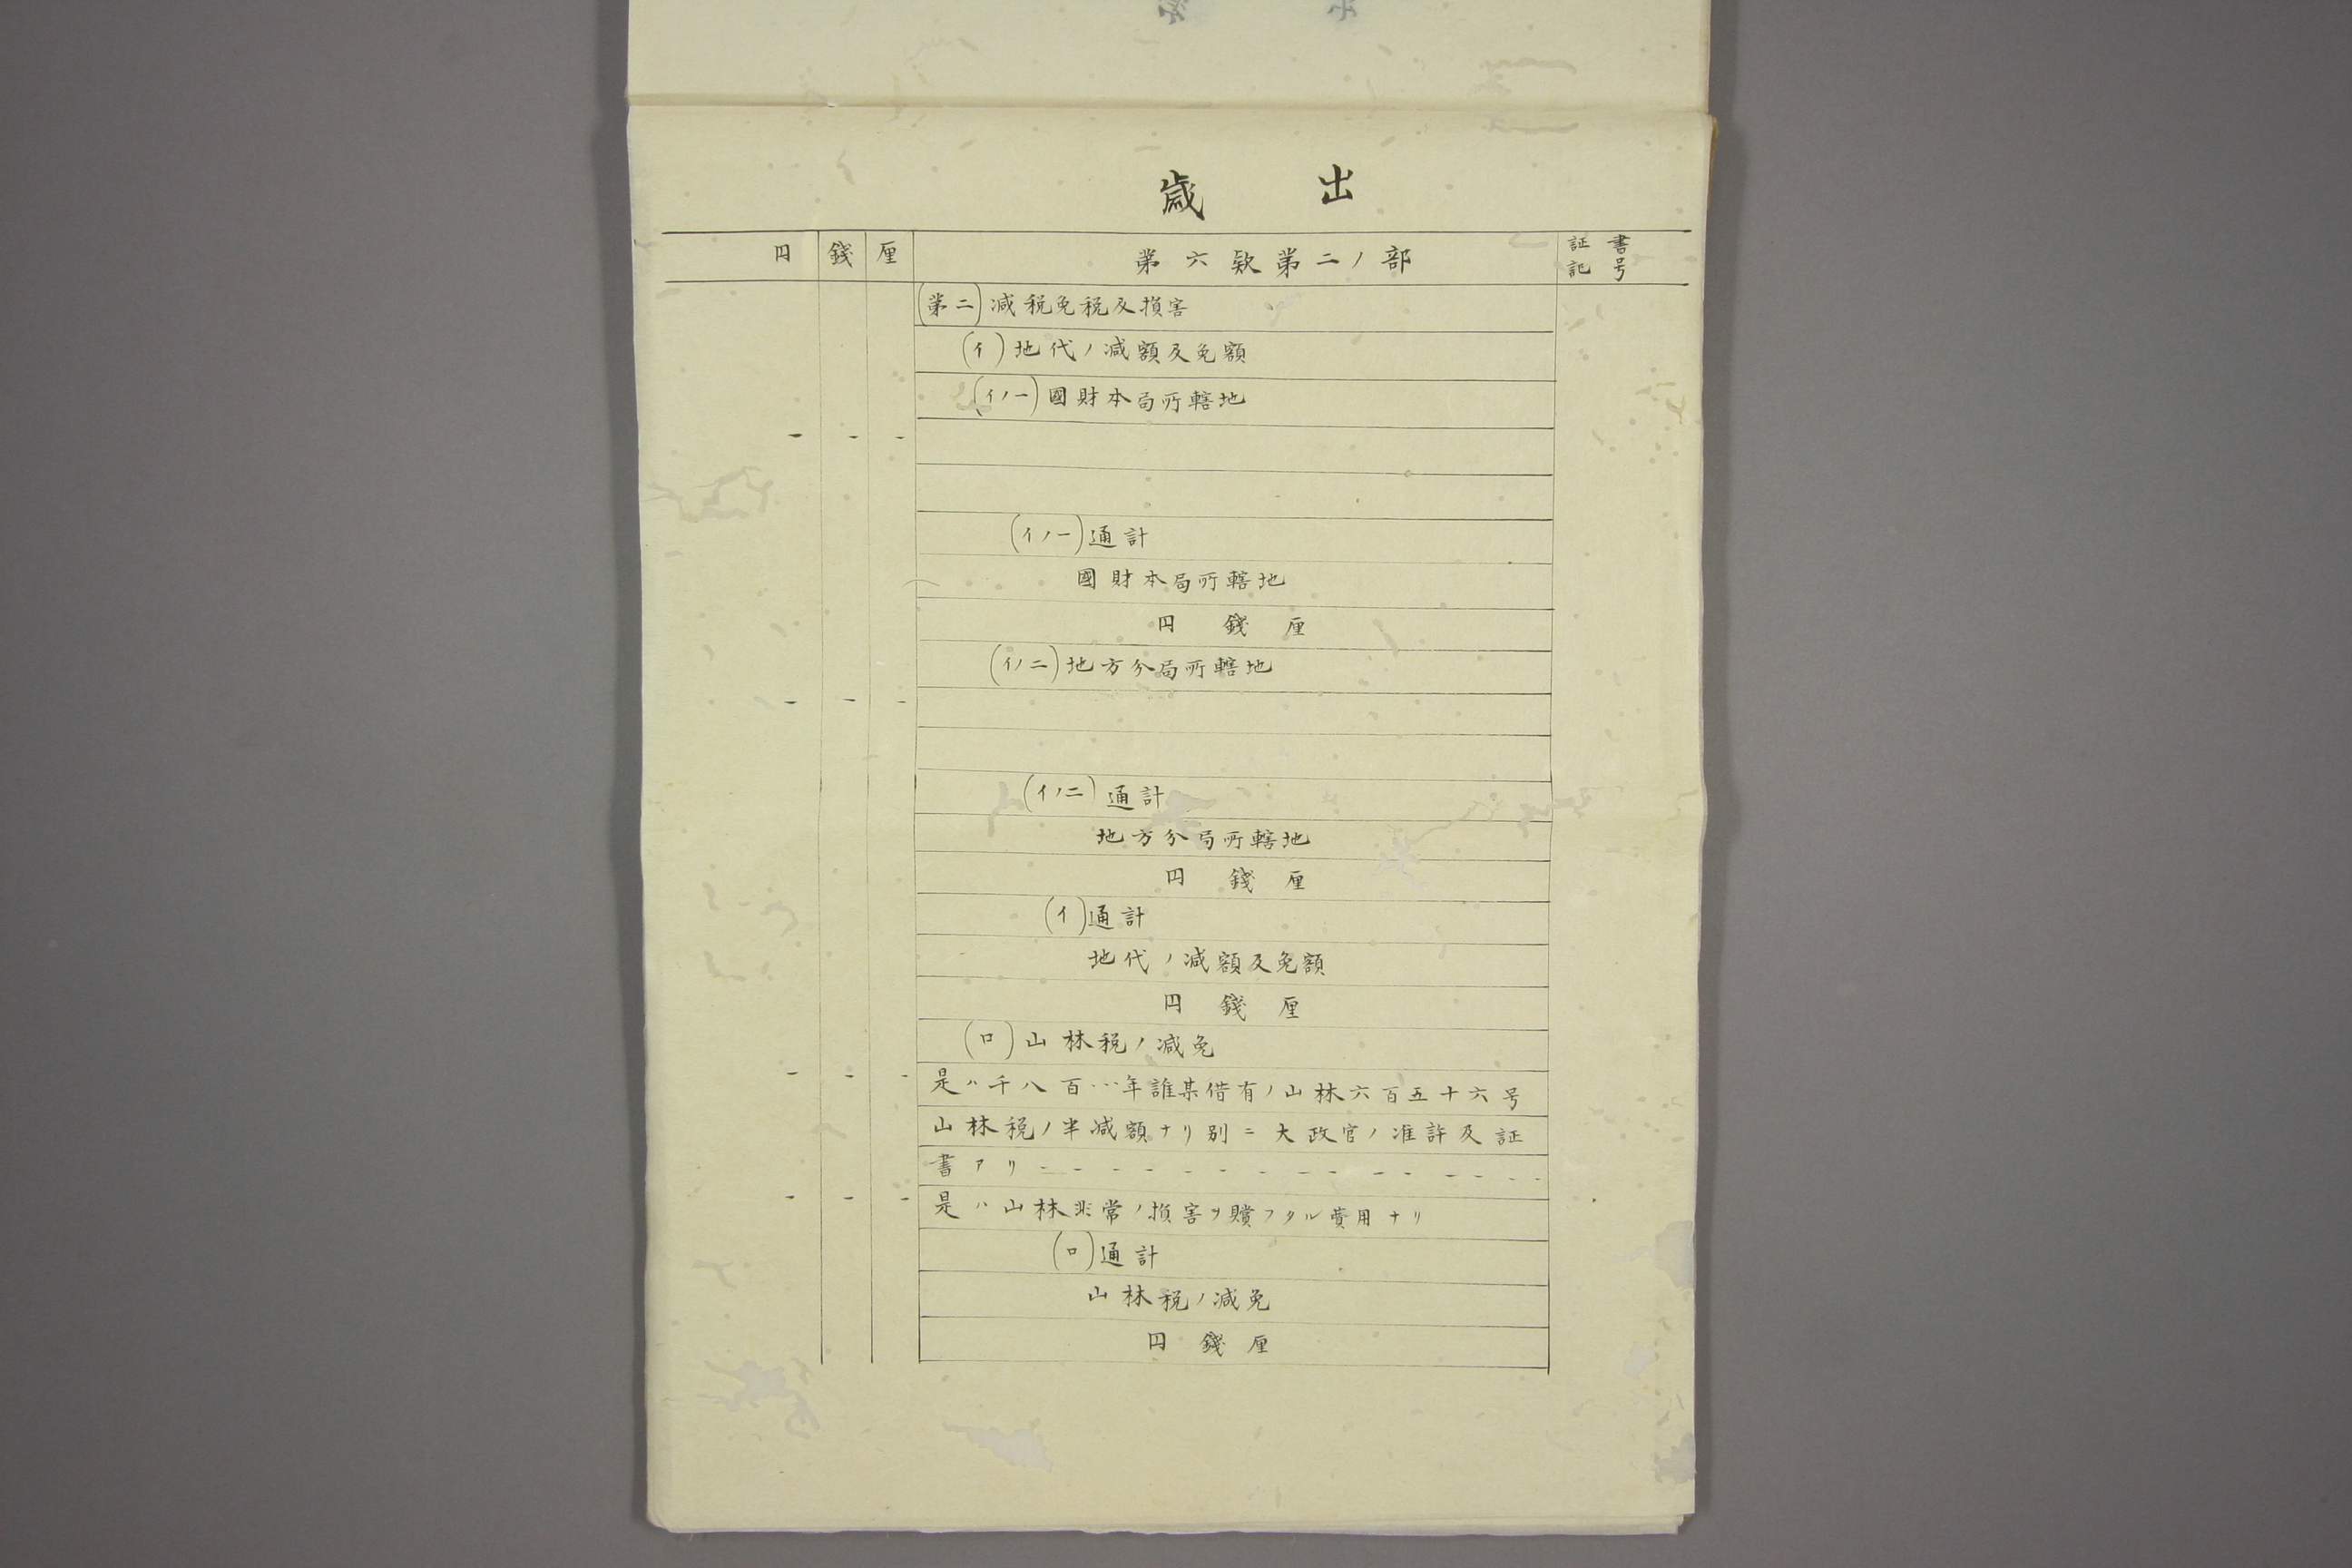 歳出
円 錢 厘 第六欵第二ノ部 証書
記号
(第二)減税免税及損害
(イ)地代ノ減額及免額
(イノ一)國財本局所轄地
- - -
(イノ一)通計
國財本局所轄地
円 錢 厘
(イノ二)地方分局所轄地
- - -
(イノ二)通計
地方分局所轄地
円 錢 厘
(イ)通計
地代ノ減額及免額
円 錢 厘
(ロ)山林税ノ減免
- - - 是ハ千八百…年誰某借有ノ山林六百五十六号
山林税ノ半減額ナリ別ニ大政官ノ准許及証
書アリ- - - - - - - - - - - - - - -
- - - 是ハ山林非常ノ損害ヲ贖フタル費用ナリ
(ロ)通計
山林税ノ減免
円 錢 厘